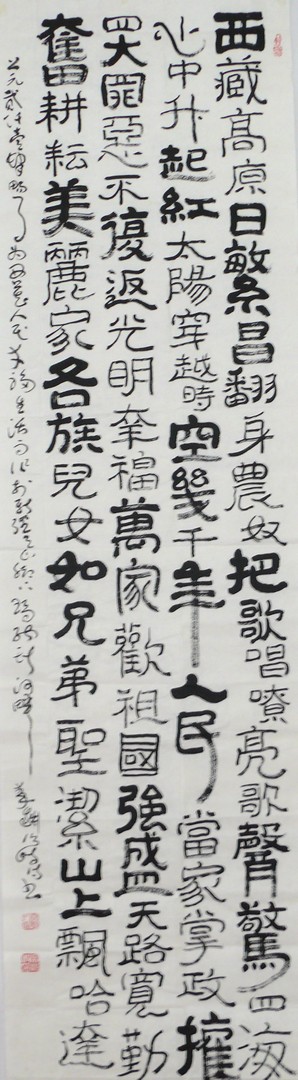 西藏高原日繁昌翻身農奴把歌唱嘹亮歌聲驚四海
心中升起紅太陽穿越時空幾千年人民當家掌政權
四大罪惡不復返光明幸福萬家歡祖國強盛天路寬勤
奮耕耘美麗家各族兒女如兄弟聖潔山上飄哈達